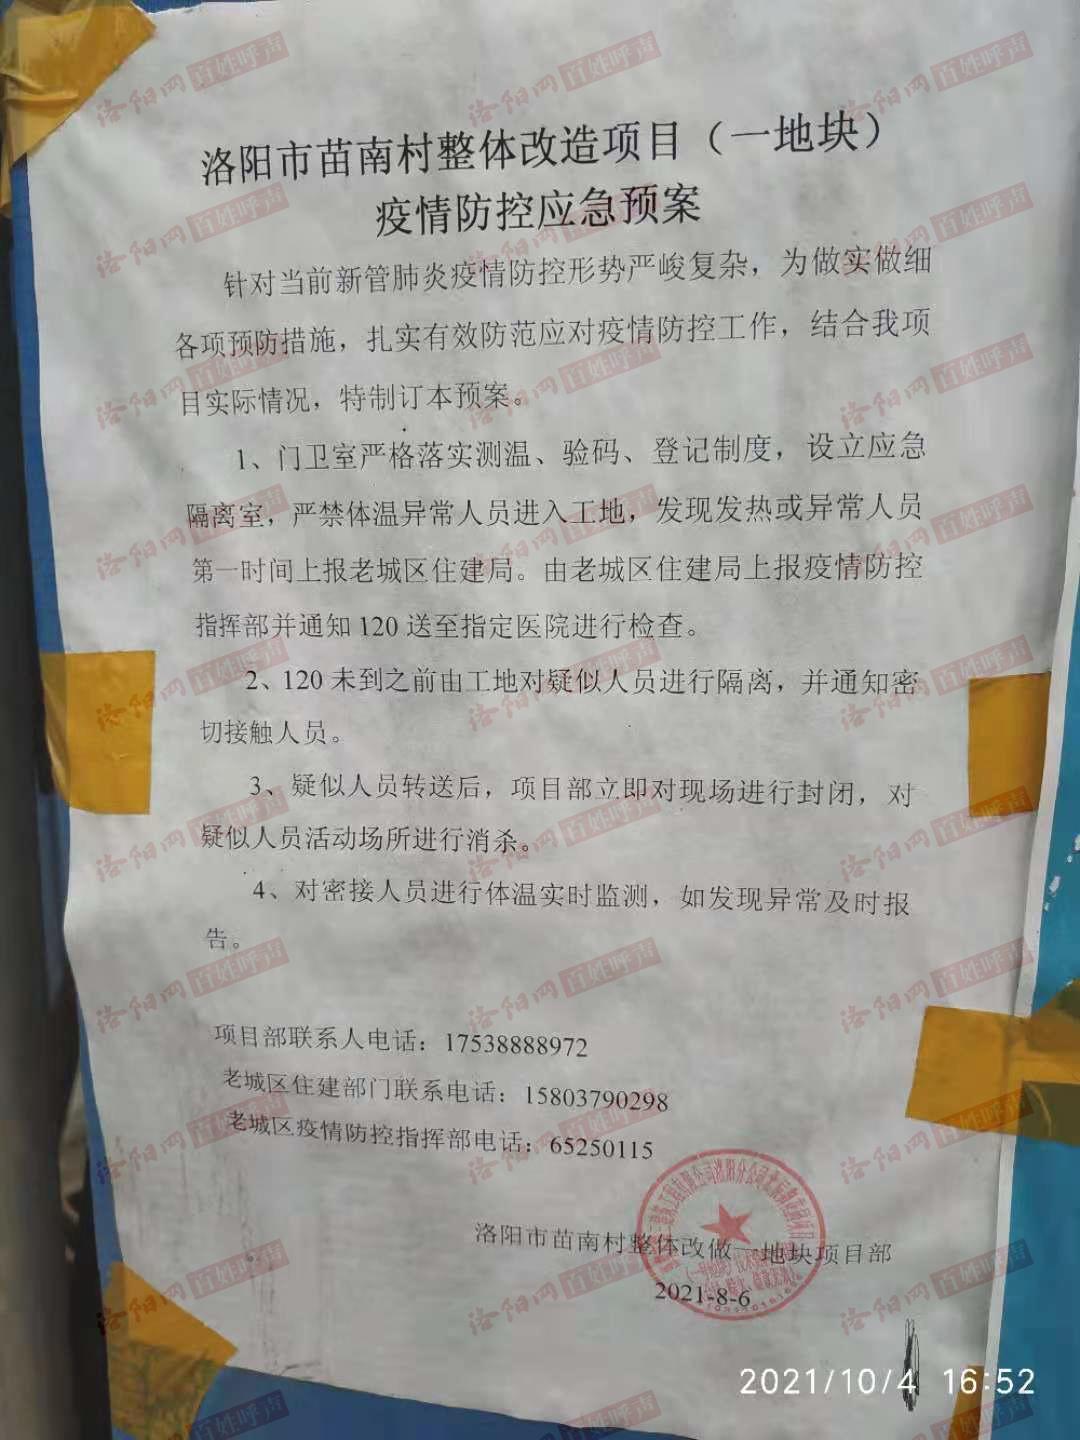 洛阳市苗南村整体改造项目（一地块）
疫情防控应急预案
针对当前新管肺炎疫情防控形势严峻复杂，为做实做细
各项预防措施，扎实有效防范应对疫情防控工作，结合我项
目实际情况，特制订本预案。
1、门卫室严格落实测温、验码、登记制度，设立应急
隔离室，严禁体温异常人员进入工地，发现发热或异常人员
第一时间上报老城区住建局。由老城区住建局上报疫情防控
指挥部并通知 120 送至指定医院进行检查。
2、120 未到之前由工地对疑似人员进行隔离，并通知密
切接触人员。
3、疑似人员转送后，项目部立即对现场进行封闭，对
疑似人员活动场所进行消杀。
4、对密接人员进行体温实时监测，如发现异常及时报
告。
项目部联系人电话：17538888972
老城区住建部门联系电话：15803790298
老城区疫情防控指挥部电话：65250115
洛阳市苗南村整体改做一地块项目部
2021-8-6
2021/10/4 16:52
洛阳网 百姓呼声